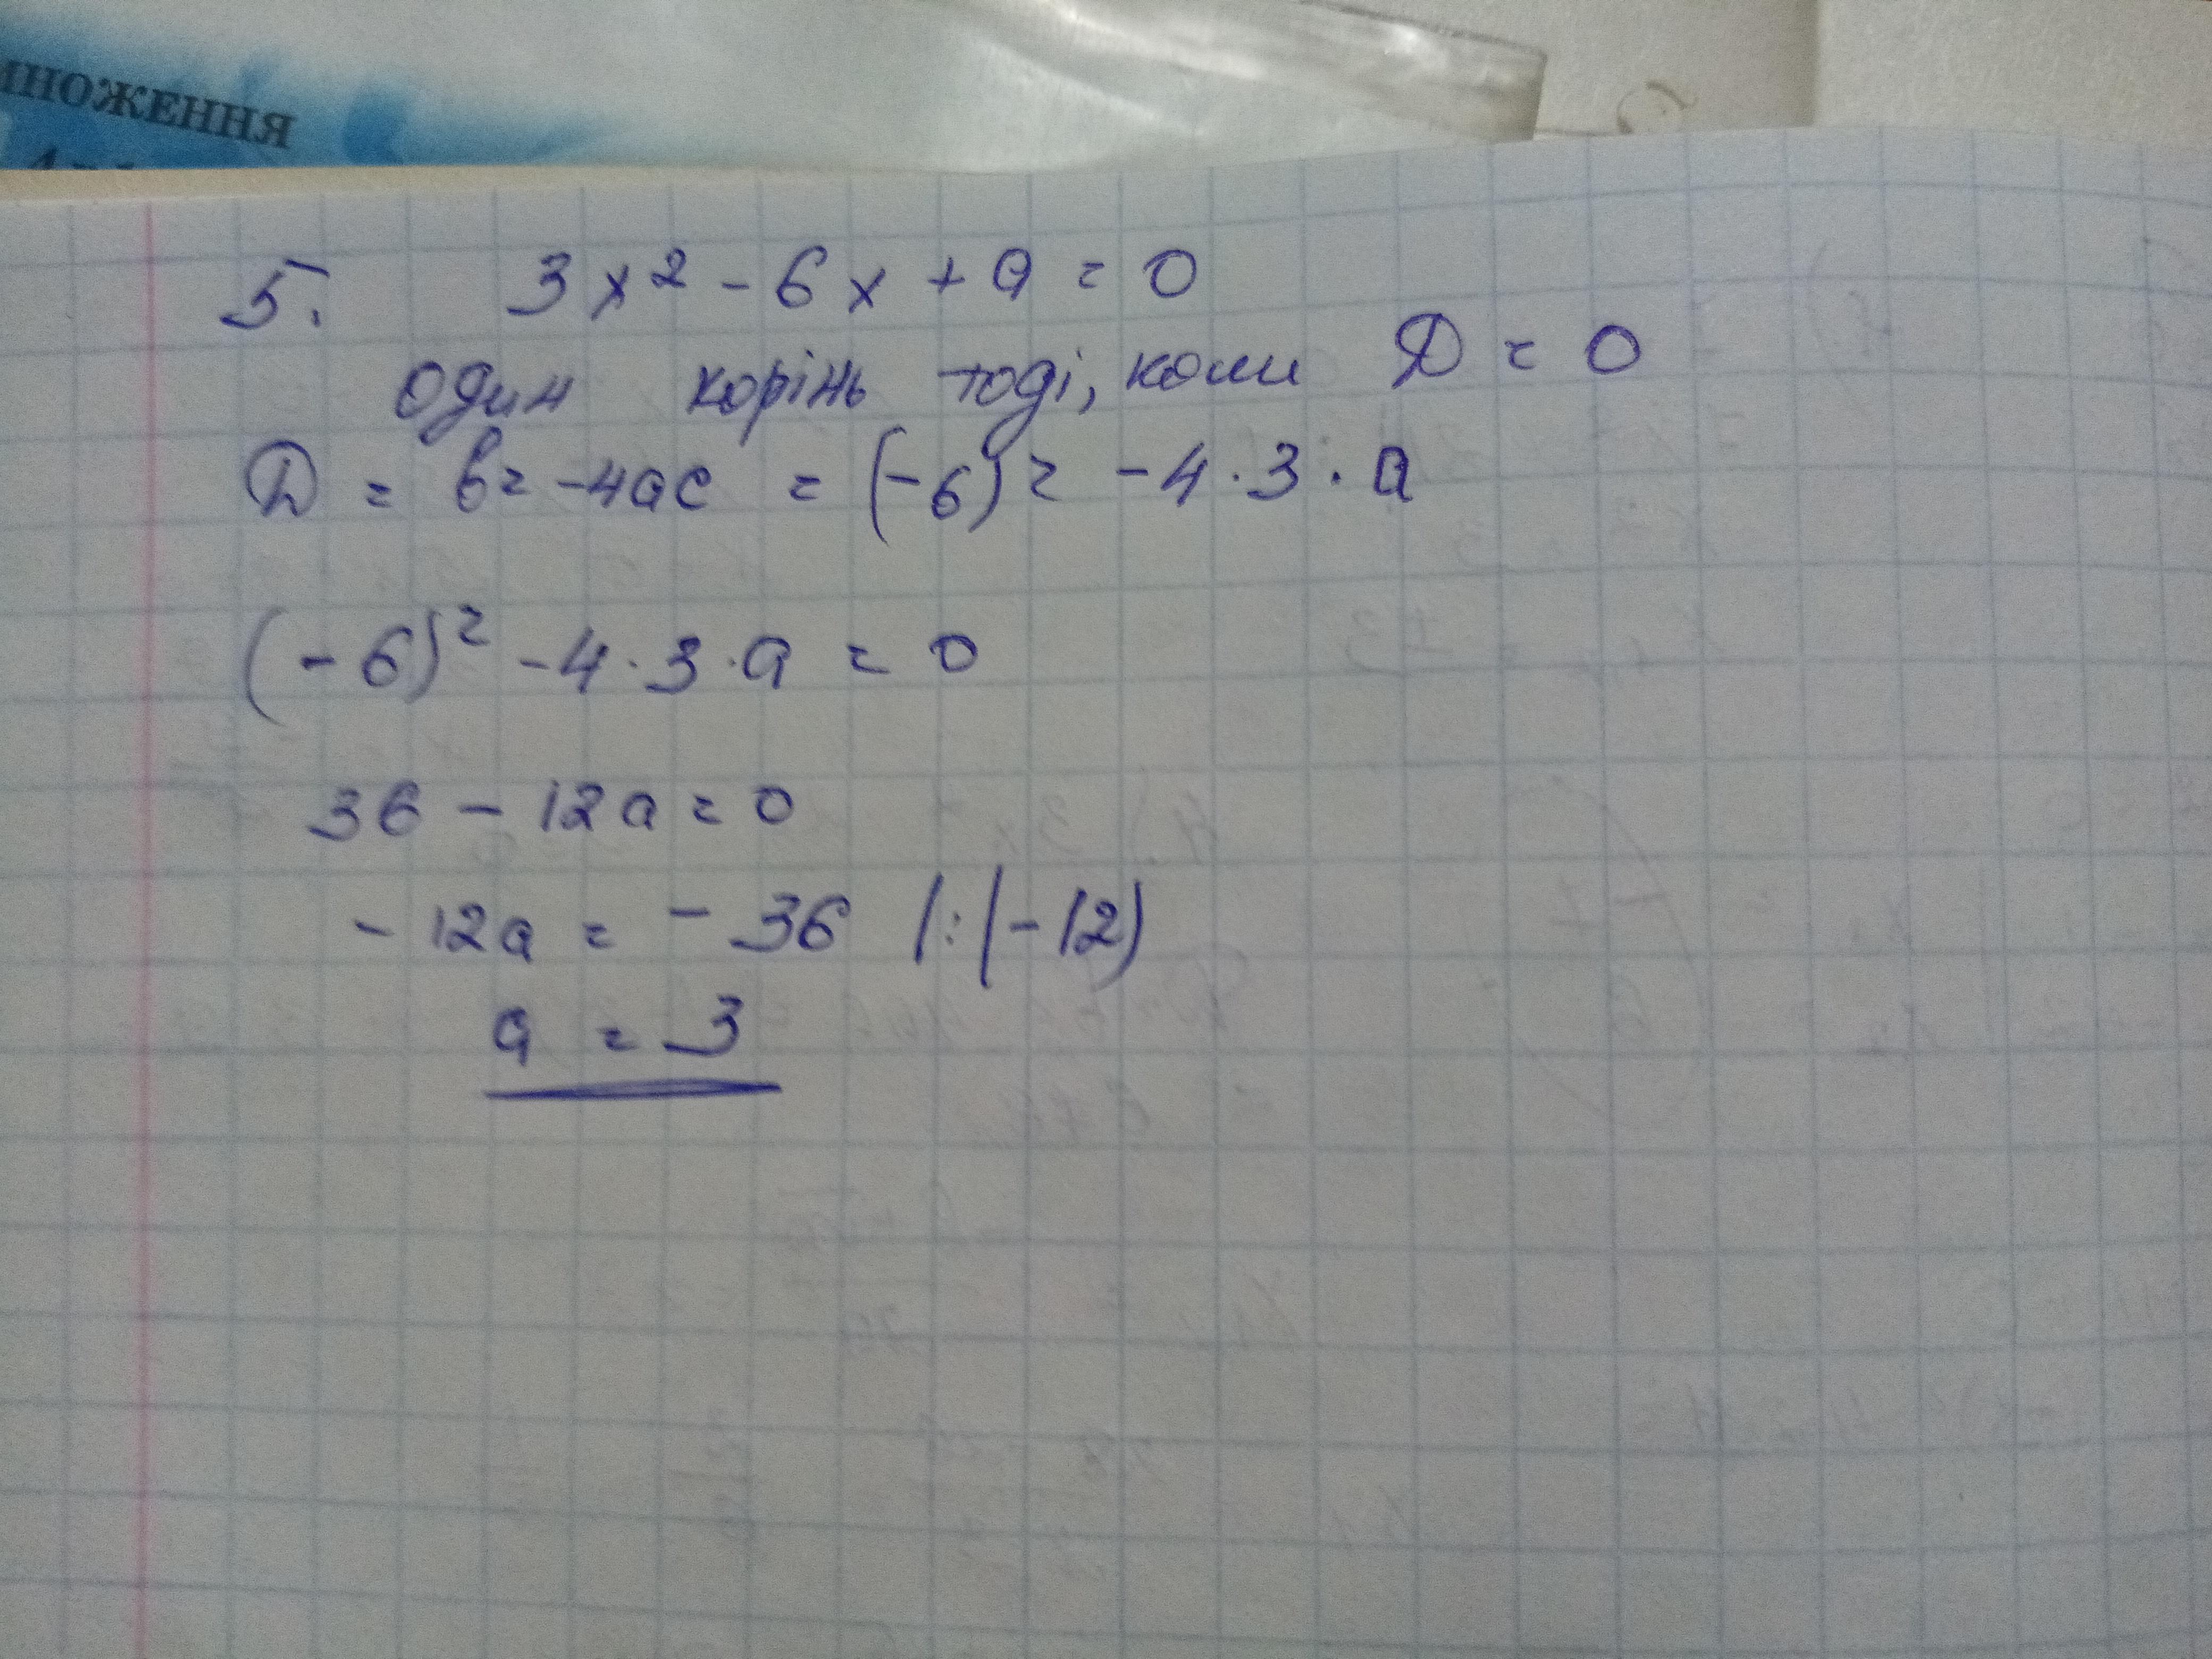 множення
5. 3x² - 6x + a = 0
Один корінь тоді, коли D = 0
D = b² - 4ac = (-6)² - 4 · 3 · a
(-6)² - 4 · 3 · a = 0
36 - 12a = 0
- 12a = - 36 | : (-12)
a = 3